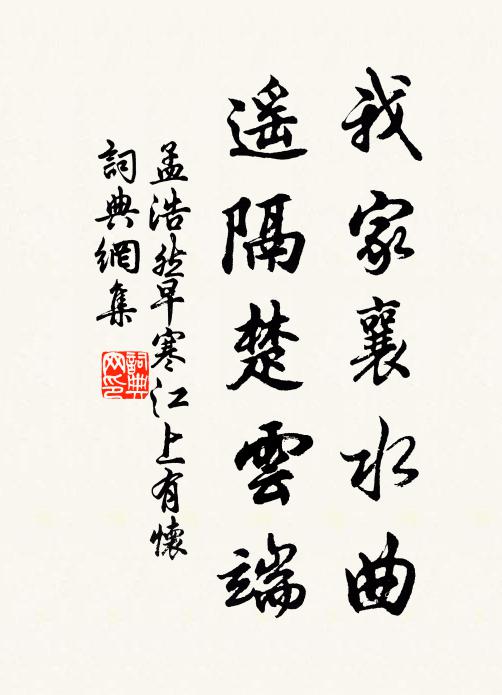 我家襄水曲
遥隔楚雲端
孟浩然早寒江上有懷
詞典網集
詞典网印